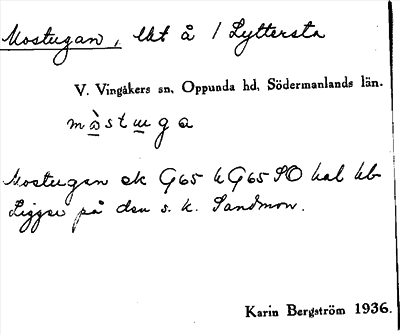 Mostugan, lht å 1 Lyttersta
V. Vingåkers sn, Oppunda hd, Södermanlands län.
måstuga
Mostugan ek G65 k G65 SO hal kb
Ligger på den s. k. Sandmon.
Karin Bergström 1936.